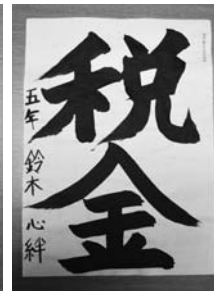 税金
五年 鈴木 心絆